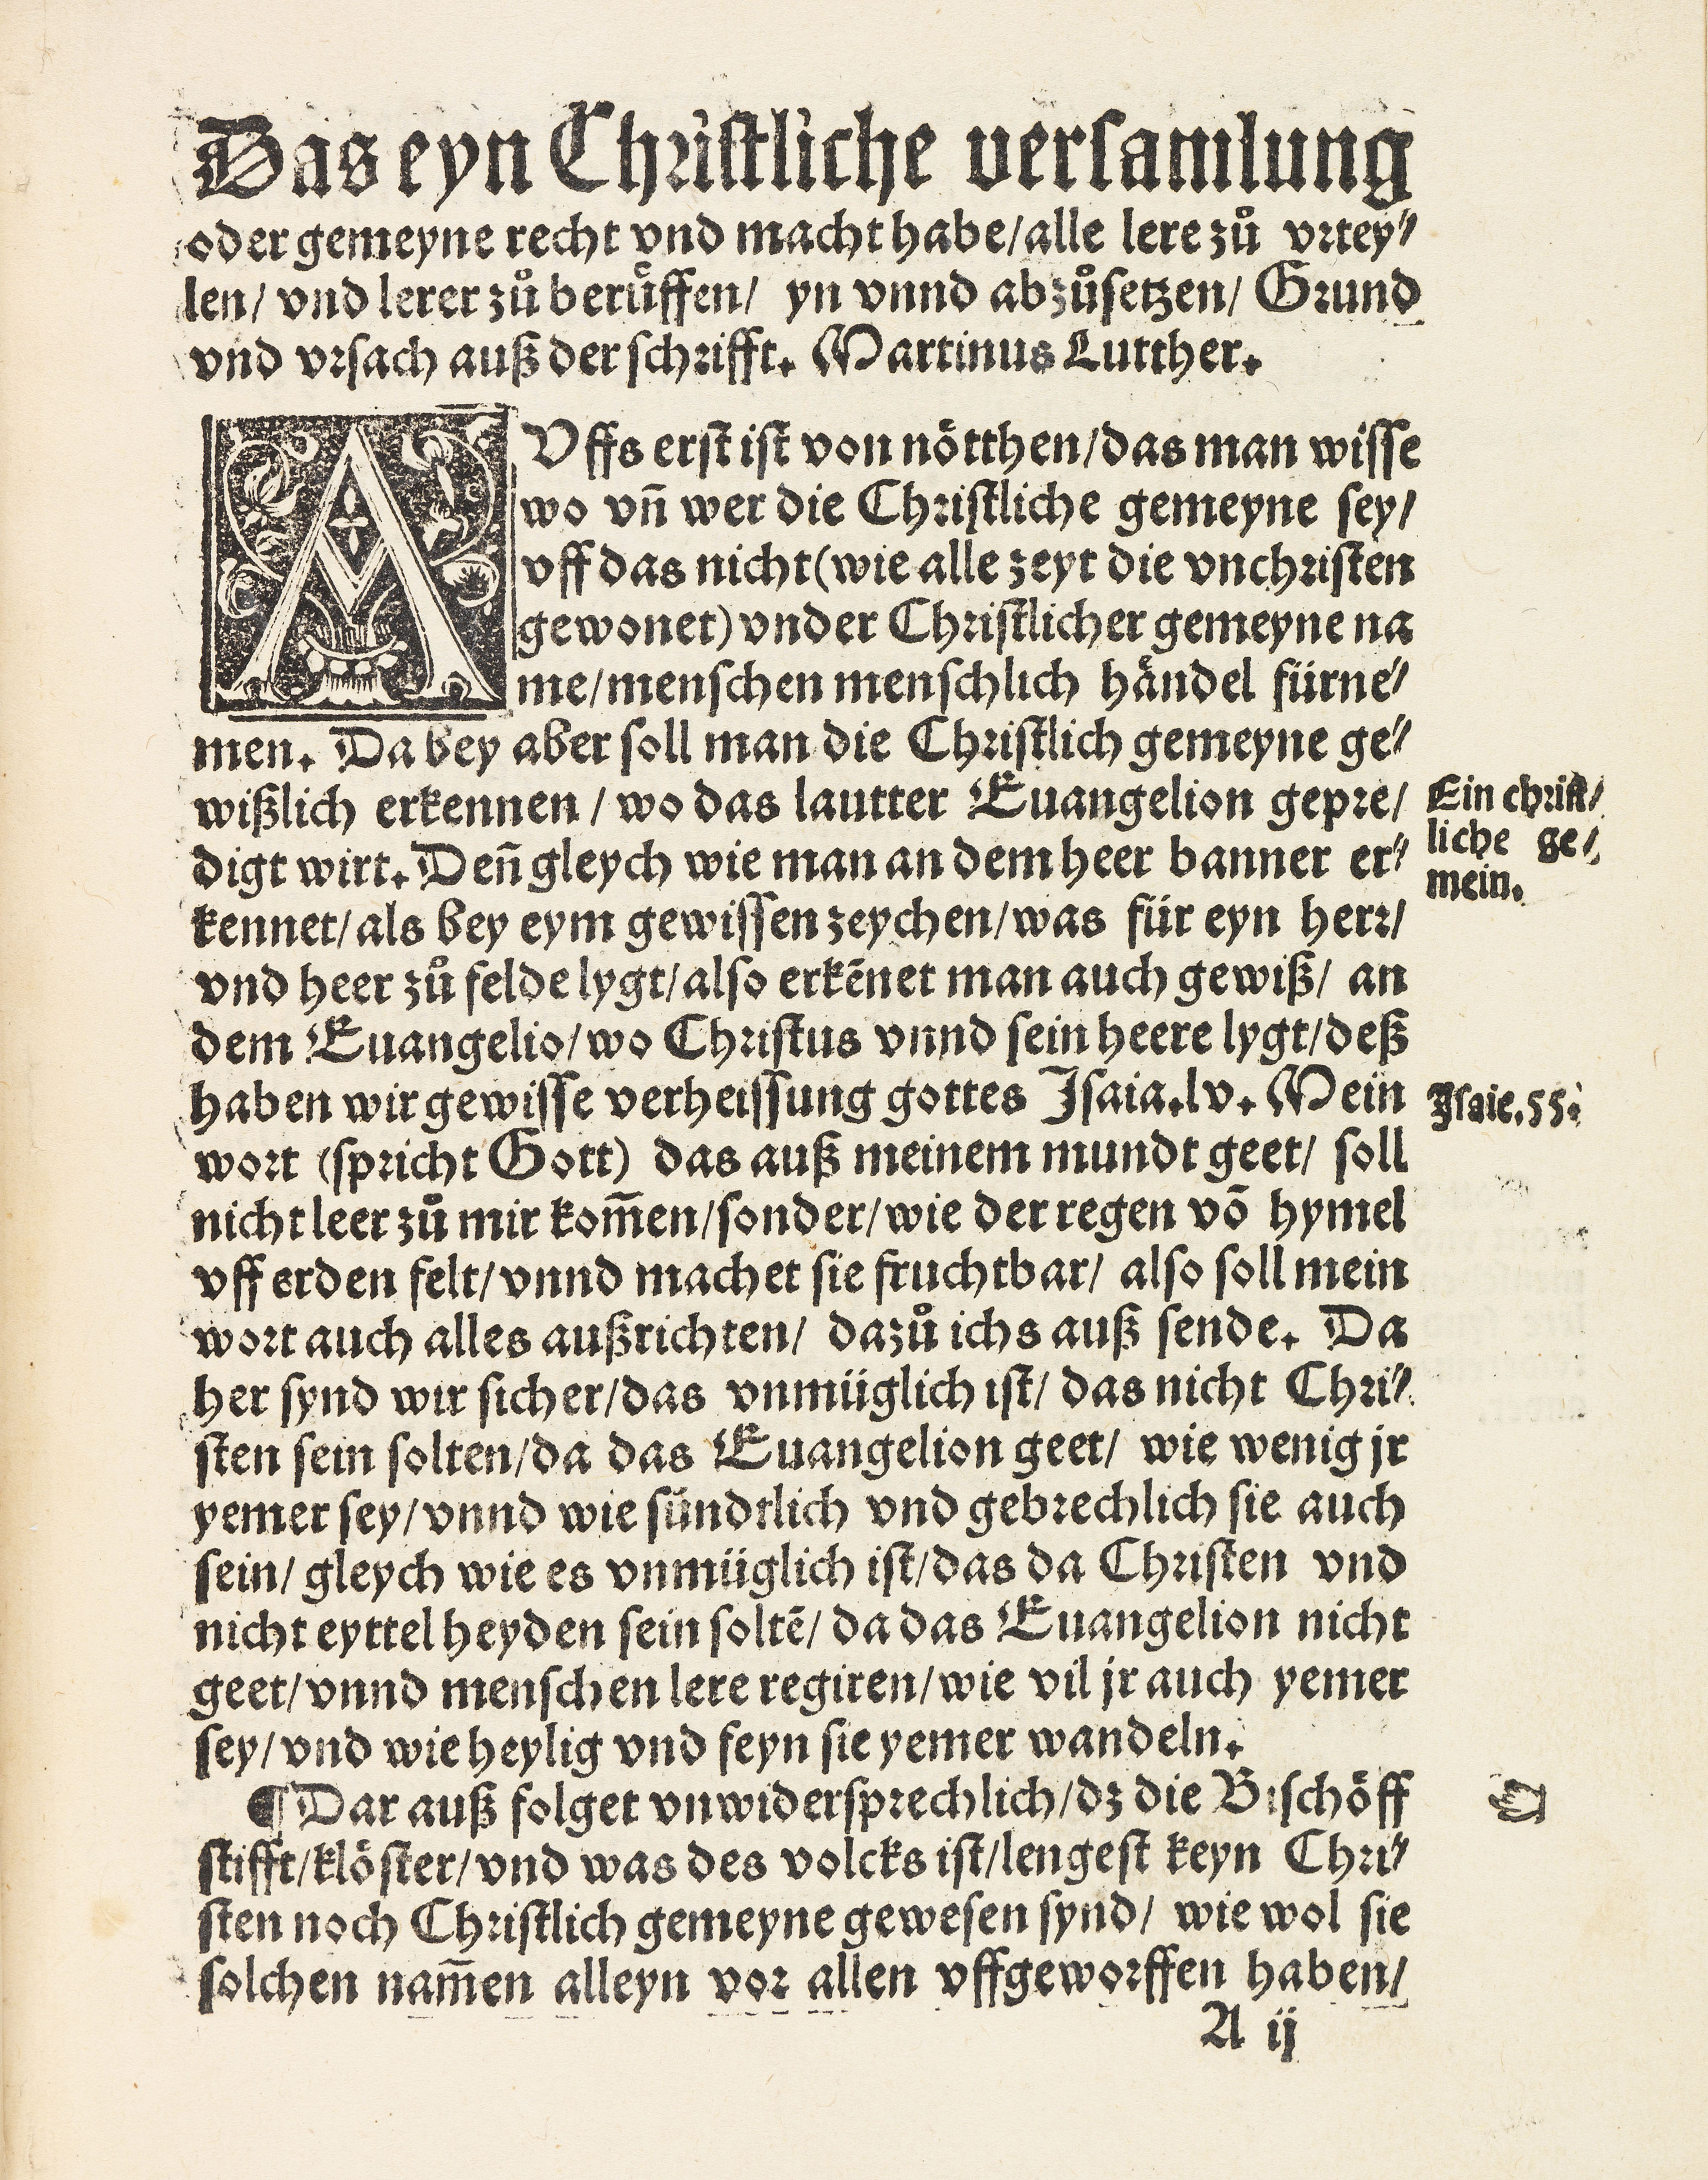 Das eyn Christliche versamlung
oder gemeyne recht vnd macht habe/alle lere zů vrtey⸗
len/ vnd lerer zů berůffen/ yn vnnd abzůsetzen/ Grund
vnd vrsach auß der schrifft. Martinus Lutther.
AVffs erst ist von nötthen/das man wisse
wo vn̄ wer die Christliche gemeyne sey/
vff das nicht(wie alle zeyt die vnchristen
gewonet)vnder Christlicher gemeyne na
me/menschen menschlich händel fürne⸗
men. Da bey aber soll man die Christlich gemeyne ge⸗
wißlich erkennen / wo das lautter Euangelion gepre/
digt wirt. Den̄ gleych wie man an dem heer banner er⸗
kennet/als bey eym gewissen zeychen/was für eyn herr/
vnd heer zů felde lygt/also erkēnet man auch gewiß/ an
dem Euangelio/wo Christus vnnd sein heere lygt/deß
haben wir gewisse verheissung gottes Jsaia.lv. Mein
wort (spricht Gott) das auß meinem mundt geet/ soll
nicht leer zů mir kom̄en/sonder/wie der regen vō hymel
vff erden felt/vnnd machet sie fruchtbar/ also soll mein
wort auch alles außrichten/ dazů ichs auß sende. Da
her synd wir sicher/das vnmüglich ist/ das nicht Chri⸗
sten sein solten/da das Euangelion geet/ wie wenig jr
yemer sey/vnnd wie sündtlich vnd gebrechlich sie auch
sein/ gleych wie es vnmüglich ist/das da Christen vnd
nicht eyttel heyden sein soltē/ da das Euangelion nicht
geet/vnnd menschen lere regiren/wie vil jr auch yemer
sey/vnd wie heylig vnd feyn sie yemer wandeln.
¶ Dar auß folget vnwidersprechlich/dz die Bischöff
stifft/klöster/vnd was des volcks ist/lengest keyn Chri⸗
sten noch Christlich gemeyne gewesen synd/ wie wol sie
solchen nam̄en alleyn vor allen vffgeworffen haben/
A ij
Ein christ/
liche ge/
mein.
Jsaie.55.